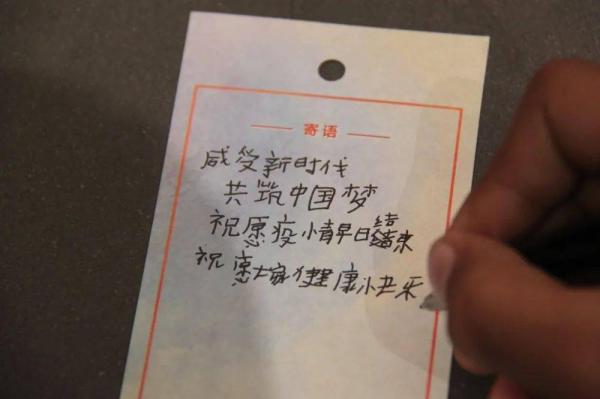 寄语
感受新时代
共筑中国梦
祝愿疫情早日结束
祝愿大家健康快乐